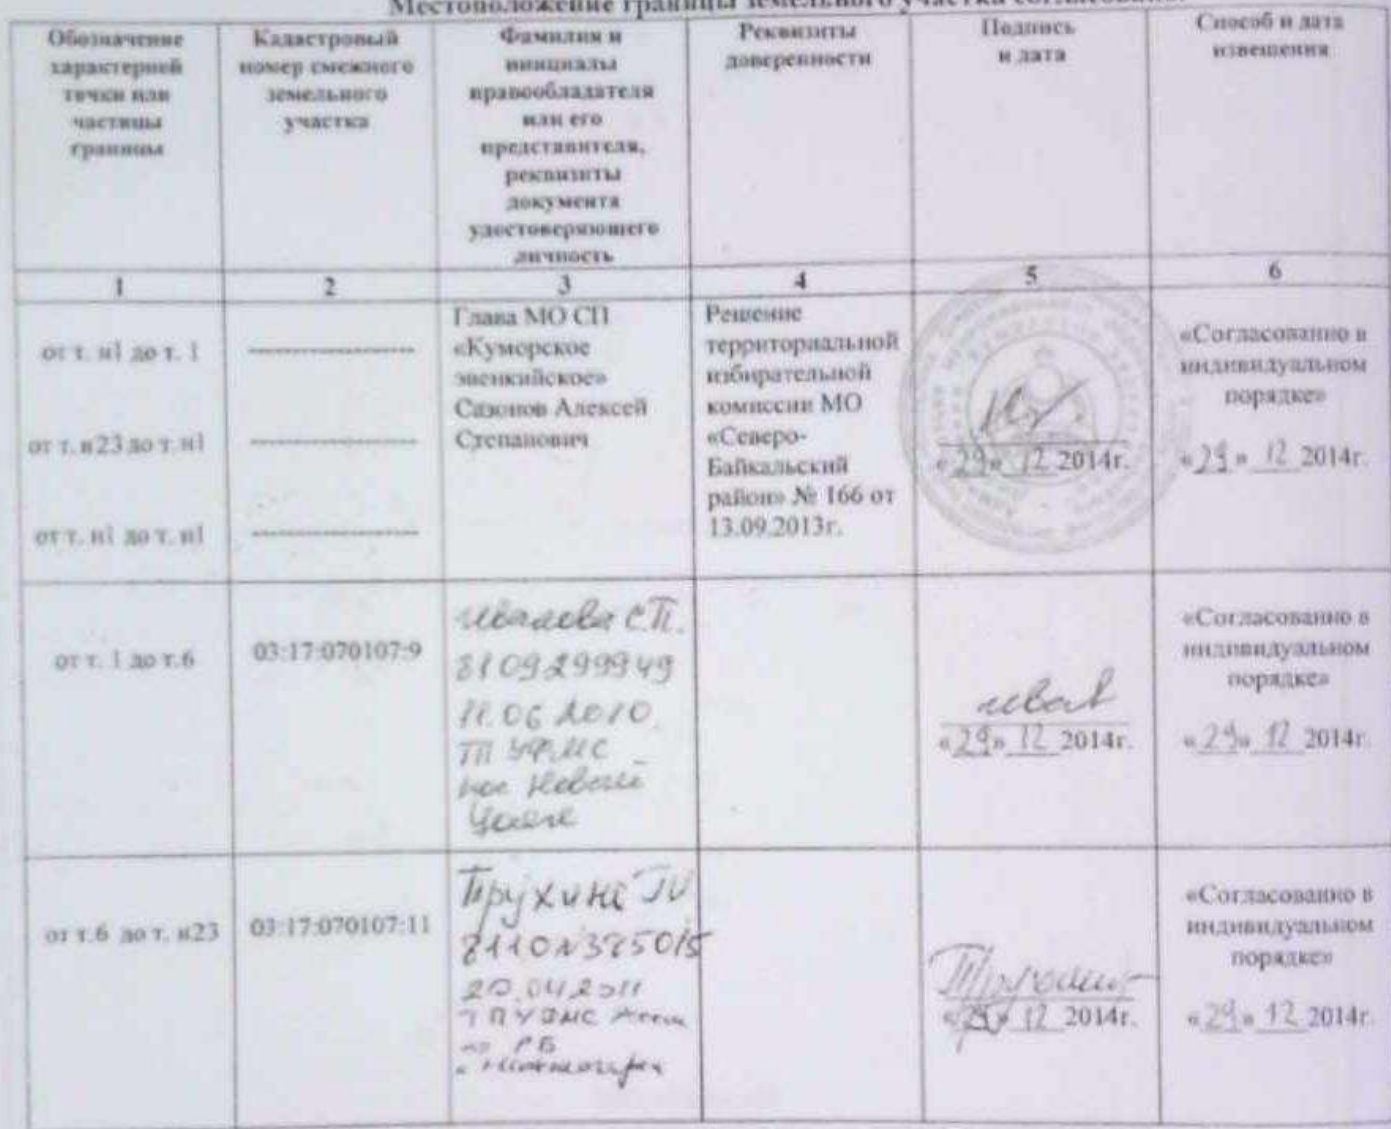 Местоположение границы земельного участка согласовано:
Обозначение
характерной
точки или
частицы
границы
Кадастровый
номер смежного
земельного
участка
Фамилия и
инициалы
правообладателя
или его
представителя,
реквизиты
документа
удостоверяющего
личность
Реквизиты
доверенности
Подпись
и дата
Способ и дата
извещения
1
2
3
4
5
6
от т. н1 до т. 1
от т. н23 до т. н1
от т. н1 до т. н1
--------------------
--------------------
--------------------
Глава МО СП
«Куморское
эвенкийское»
Сазонов Алексей
Степанович
Решение
территориальной
избирательной
комиссии МО
«Северо-
Байкальский
район» № 166 от
13.09.2013г.
«29» 12 2014г.
«Согласованно в
индивидуальном
порядке»
«29» 12 2014г.
от т. 1 до т.6
03:17:070107:9
С.П.
8109299949
11.06.2010.
ТП УФМС
пос Новый
Уоян
«29» 12 2014г.
«Согласованно в
индивидуальном
порядке»
«29» 12 2014г.
от т.6 до т. н23
03:17:070107:11
8110N325015
20.04.2011
РБ
«29» 12 2014г.
«Согласованно в
индивидуальном
порядке»
«29» 12 2014г.